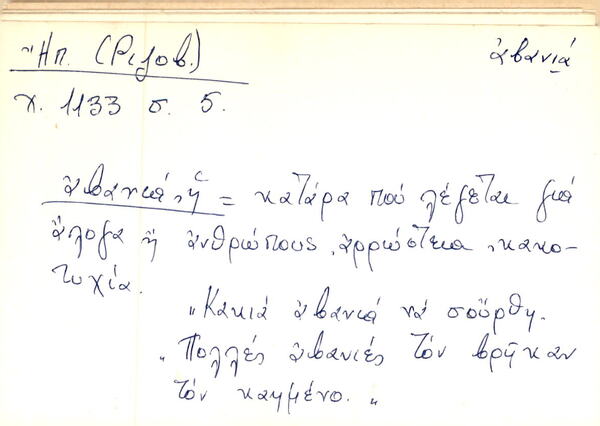 Ἤπ. (Ριζοβ.)
ἀβανιά
χ. 1133 σ. 5.
ἀβανιά, ἡ = κατάρα πού λέγεται γιά
ἄλογα ἤ ἀνθρώπους, ἀρρώστεια, κακο-
τυχία.
„Κακιά ἀβανιά νά σοὔρθῃ.
„Πολλές ἀβανιές τόν βρῆκαν
τόν καημένο.„